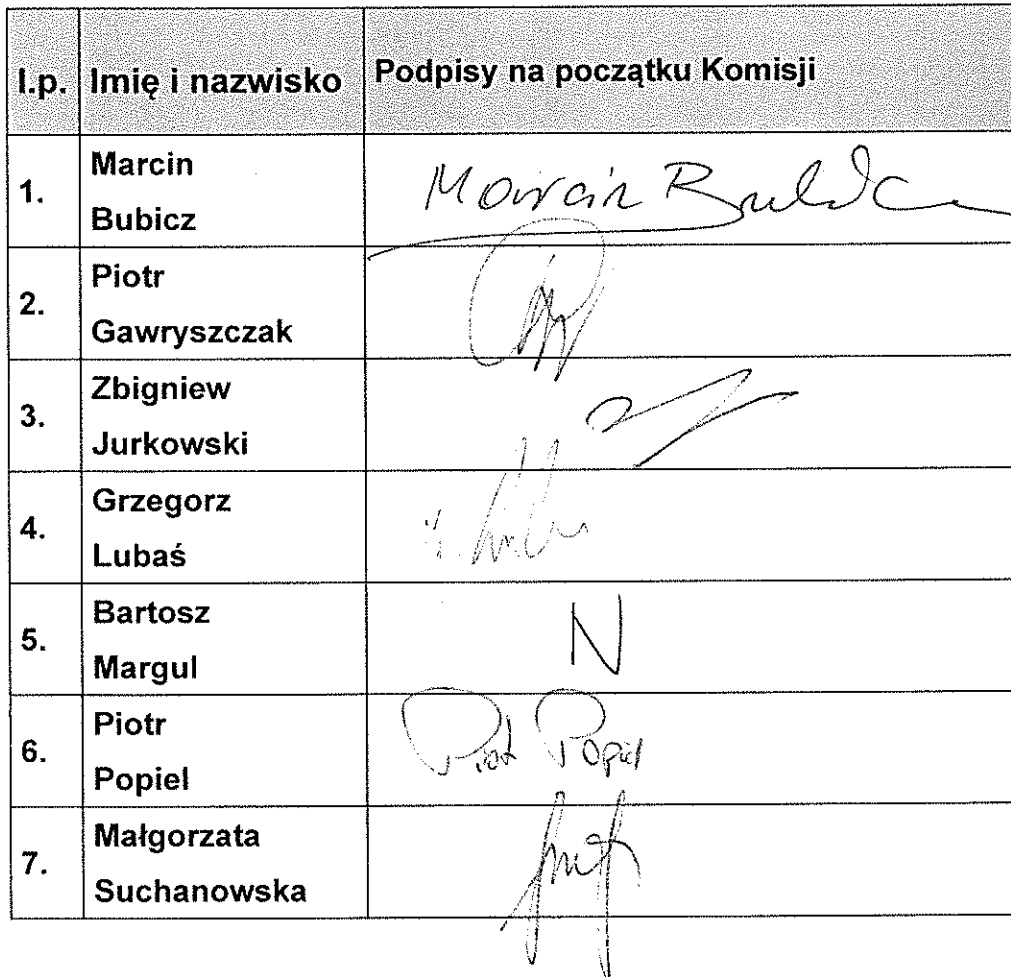 l.p. Imię i nazwisko Podpisy na początku Komisji
1. Marcin Bubicz Marcin
2. Piotr Gawryszczak
3. Zbigniew Jurkowski
4. Grzegorz Lubaś
5. Bartosz Margul N
6. Piotr Popiel Piotr Popiel
7. Małgorzata Suchanowska